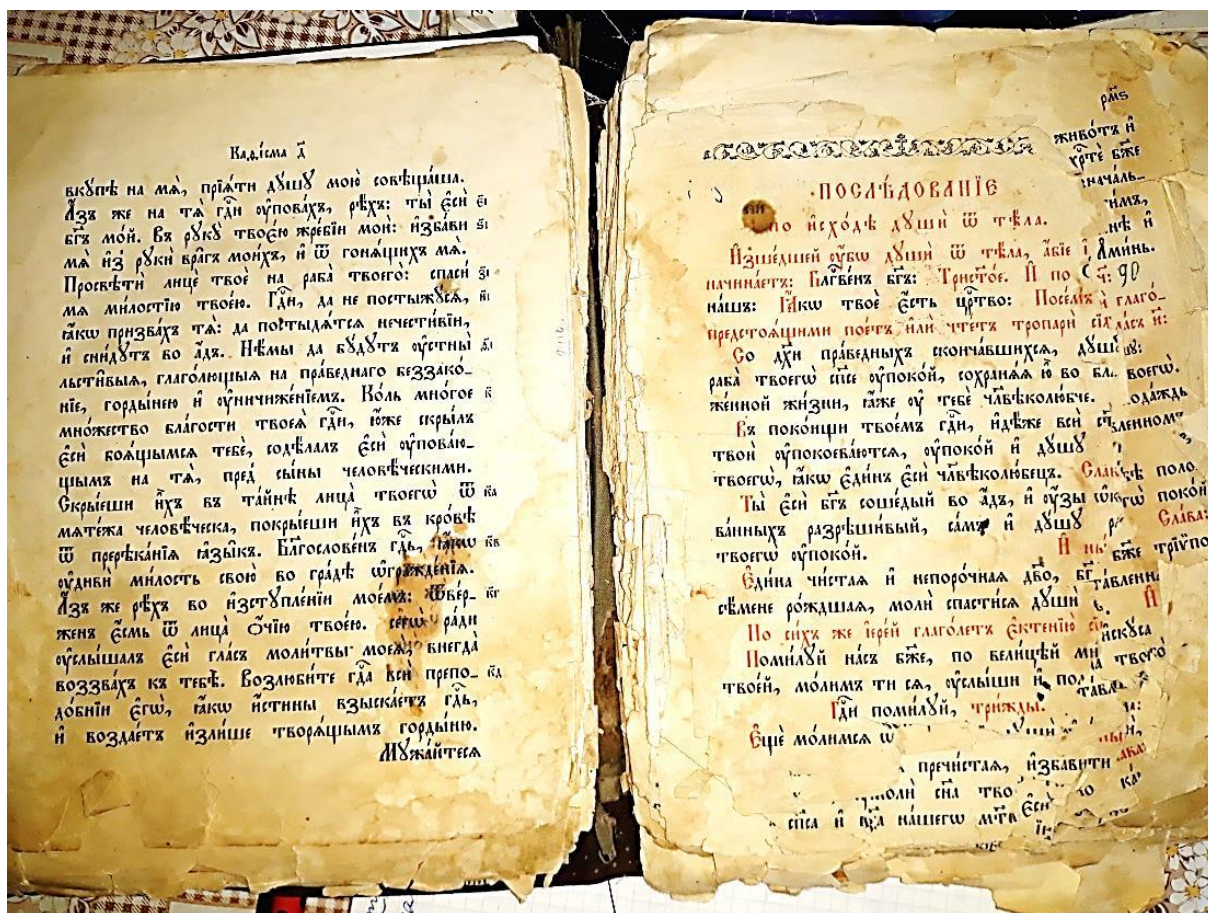 Каѳі́сма д҃
вкꙋ́пѣ на мѧ̀, прїѧ́ти дꙋ́шꙋ мою̀ совѣща́ша.
А҆́зъ же на тѧ̀ гдⷭ҇и ᲂу҆пова́хъ, рѣ́хъ: ты̀ є҆сѝ є҃і
бг҃ъ мо́й. Въ рꙋкꙋ̀ твоє́ю жре́бїи мои̑: и҆зба́ви ѕ҃і
мѧ̀ и҆з̾ рꙋкѝ вра̑гъ мои́хъ, и҆ ѿ гонѧ́щихъ мѧ̀.
Просвѣтѝ лицѐ твоѐ на раба̀ твоего̀: спасѝ з҃і
мѧ ми́лостїю твое́ю. Гдⷭ҇и, да не постыжꙋ́сѧ, и҃і
ꙗ҆́кѡ призва́хъ тѧ̀: да постыдѧ́тсѧ нечести́вїи,
и҆ сни́дꙋтъ во а҆́дъ. Нѣ̑мы да бꙋ́дꙋтъ ᲂу҆стны̀ ѳ҃і
льсти̑выѧ, глаго́лющыѧ на пра́веднаго беззако́-
нїе, горды́нею и҆ ᲂу҆ничиже́нїемъ. Ко́ль мно́гое к҃
мно́жество бла́гости твоеѧ̀ гдⷭ҇и, ю҆́же скры́лъ
є҆сѝ боѧ́щымсѧ тебє̀, содѣ́лалъ є҆сѝ ᲂу҆пова́ю-
щымъ на тѧ̀, пред̾ сы́ны человѣ́ческими.
Скры́еши и҆̀хъ въ та́йнѣ лица̀ твоегѡ̀ ѿ к҃а
мѧте́жа человѣ́ческа, покры́еши и҆̀хъ въ кро́вѣ
ѿ пререка́нїѧ ꙗ҆зы̑къ. Благослове́нъ гдⷭ҇ь, ꙗ҆́кѡ к҃в
ᲂу҆дивѝ ми́лость свою̀ во гра́дѣ ѡ҆гражде́нїѧ.
А҆́зъ же рѣ́хъ во и҆зстꙋпле́нїи мое́мъ: ѿве́р- к҃г
женъ є҆́смь ѿ лица̀ ѻ҆́чїю твоє́ю. сегѡ̀ ра́ди
ᲂу҆слы́шалъ є҆сѝ гла́съ моли́твы моеѧ̀, внегда̀
воззва́хъ къ тебѣ̀. Возлюби́те гдⷭ҇а всѝ препо- к҃д
до́бнїи є҆гѡ̀, ꙗ҆́кѡ и҆́стины взыска́етъ гдⷭ҇ь,
и҆ воздае́тъ и҆зли́ше творѧ́щымъ горды́ню.
Мꙋжа́йтесѧ
рм҃ѕ
живо́тъ и҆
хрⷭ҇те́ бж҃е
нача́ль-
ПОСЛѢ́ДОВАНЇЕ
по и҆схо́дѣ дꙋшѝ ѿ тѣ́ла.
И҆зше́дшей ᲂу҆́бѡ дꙋшѝ ѿ тѣ́ла, а҆́бїе
А҆ми́нь.
начина́етъ: Блгⷭ҇ве́нъ бг҃ъ: Трист҃о́е. И҆ по
90
на́шъ: Ꙗ҆́кѡ твоѐ є҆́сть црⷭ҇тво: Посе́мъ и҆ глаго́-
предстоѧ́щими пое́тъ и҆лѝ чте́тъ тропарѝ сїѧ̑
Со дꙋ́хи пра́ведныхъ сконча́вшихсѧ, дꙋ́шꙋ
раба̀ твоегѡ̀ сп҃се ᲂу҆поко́й, сохранѧ́ѧ ю҆̀ во бла- воегѡ̀.
же́нной жи́зни, ꙗ҆́же ᲂу҆ тебє̀ чл҃вѣколю́бче. ода́ждь
Въ поко́ищи твое́мъ гдⷭ҇и, и҆дѣ́же всѝ ст҃і́и
твоѝ ᲂу҆покоева́ютсѧ, ᲂу҆поко́й и҆ дꙋ́шꙋ
твоегѡ̀, ꙗ҆́кѡ є҆ди́нъ є҆сѝ чл҃вѣколю́бецъ. поло
Ты̀ є҆сѝ бг҃ъ соше́дый во а҆́дъ, и҆ ᲂу҆́зы поко́й
ва́нныхъ разрѣши́вый, са́мъ и҆ дꙋ́шꙋ Сла́ва:
твоегѡ̀ ᲂу҆поко́й. И҆ бж҃е
Є҆ди́на чи́стаѧ и҆ непоро́чнаѧ дв҃о,
сѣ́мене ро́ждшаѧ, молѝ спасти́сѧ дꙋшѝ И҆
По си́хъ же і҆ере́й глаго́летъ є҆ктенїю̀
Поми́лꙋй на́съ бж҃е, по вели́цѣй
твое́й, мо́лимъ ти сѧ, ᲂу҆слы́ши и҆
Гдⷭ҇и поми́лꙋй, три́жды.
Є҆щѐ мо́лимсѧ ѡ҆
пречи́стаѧ, и҆зба́вити
сн҃а
сп҃са и҆ на́шегѡ